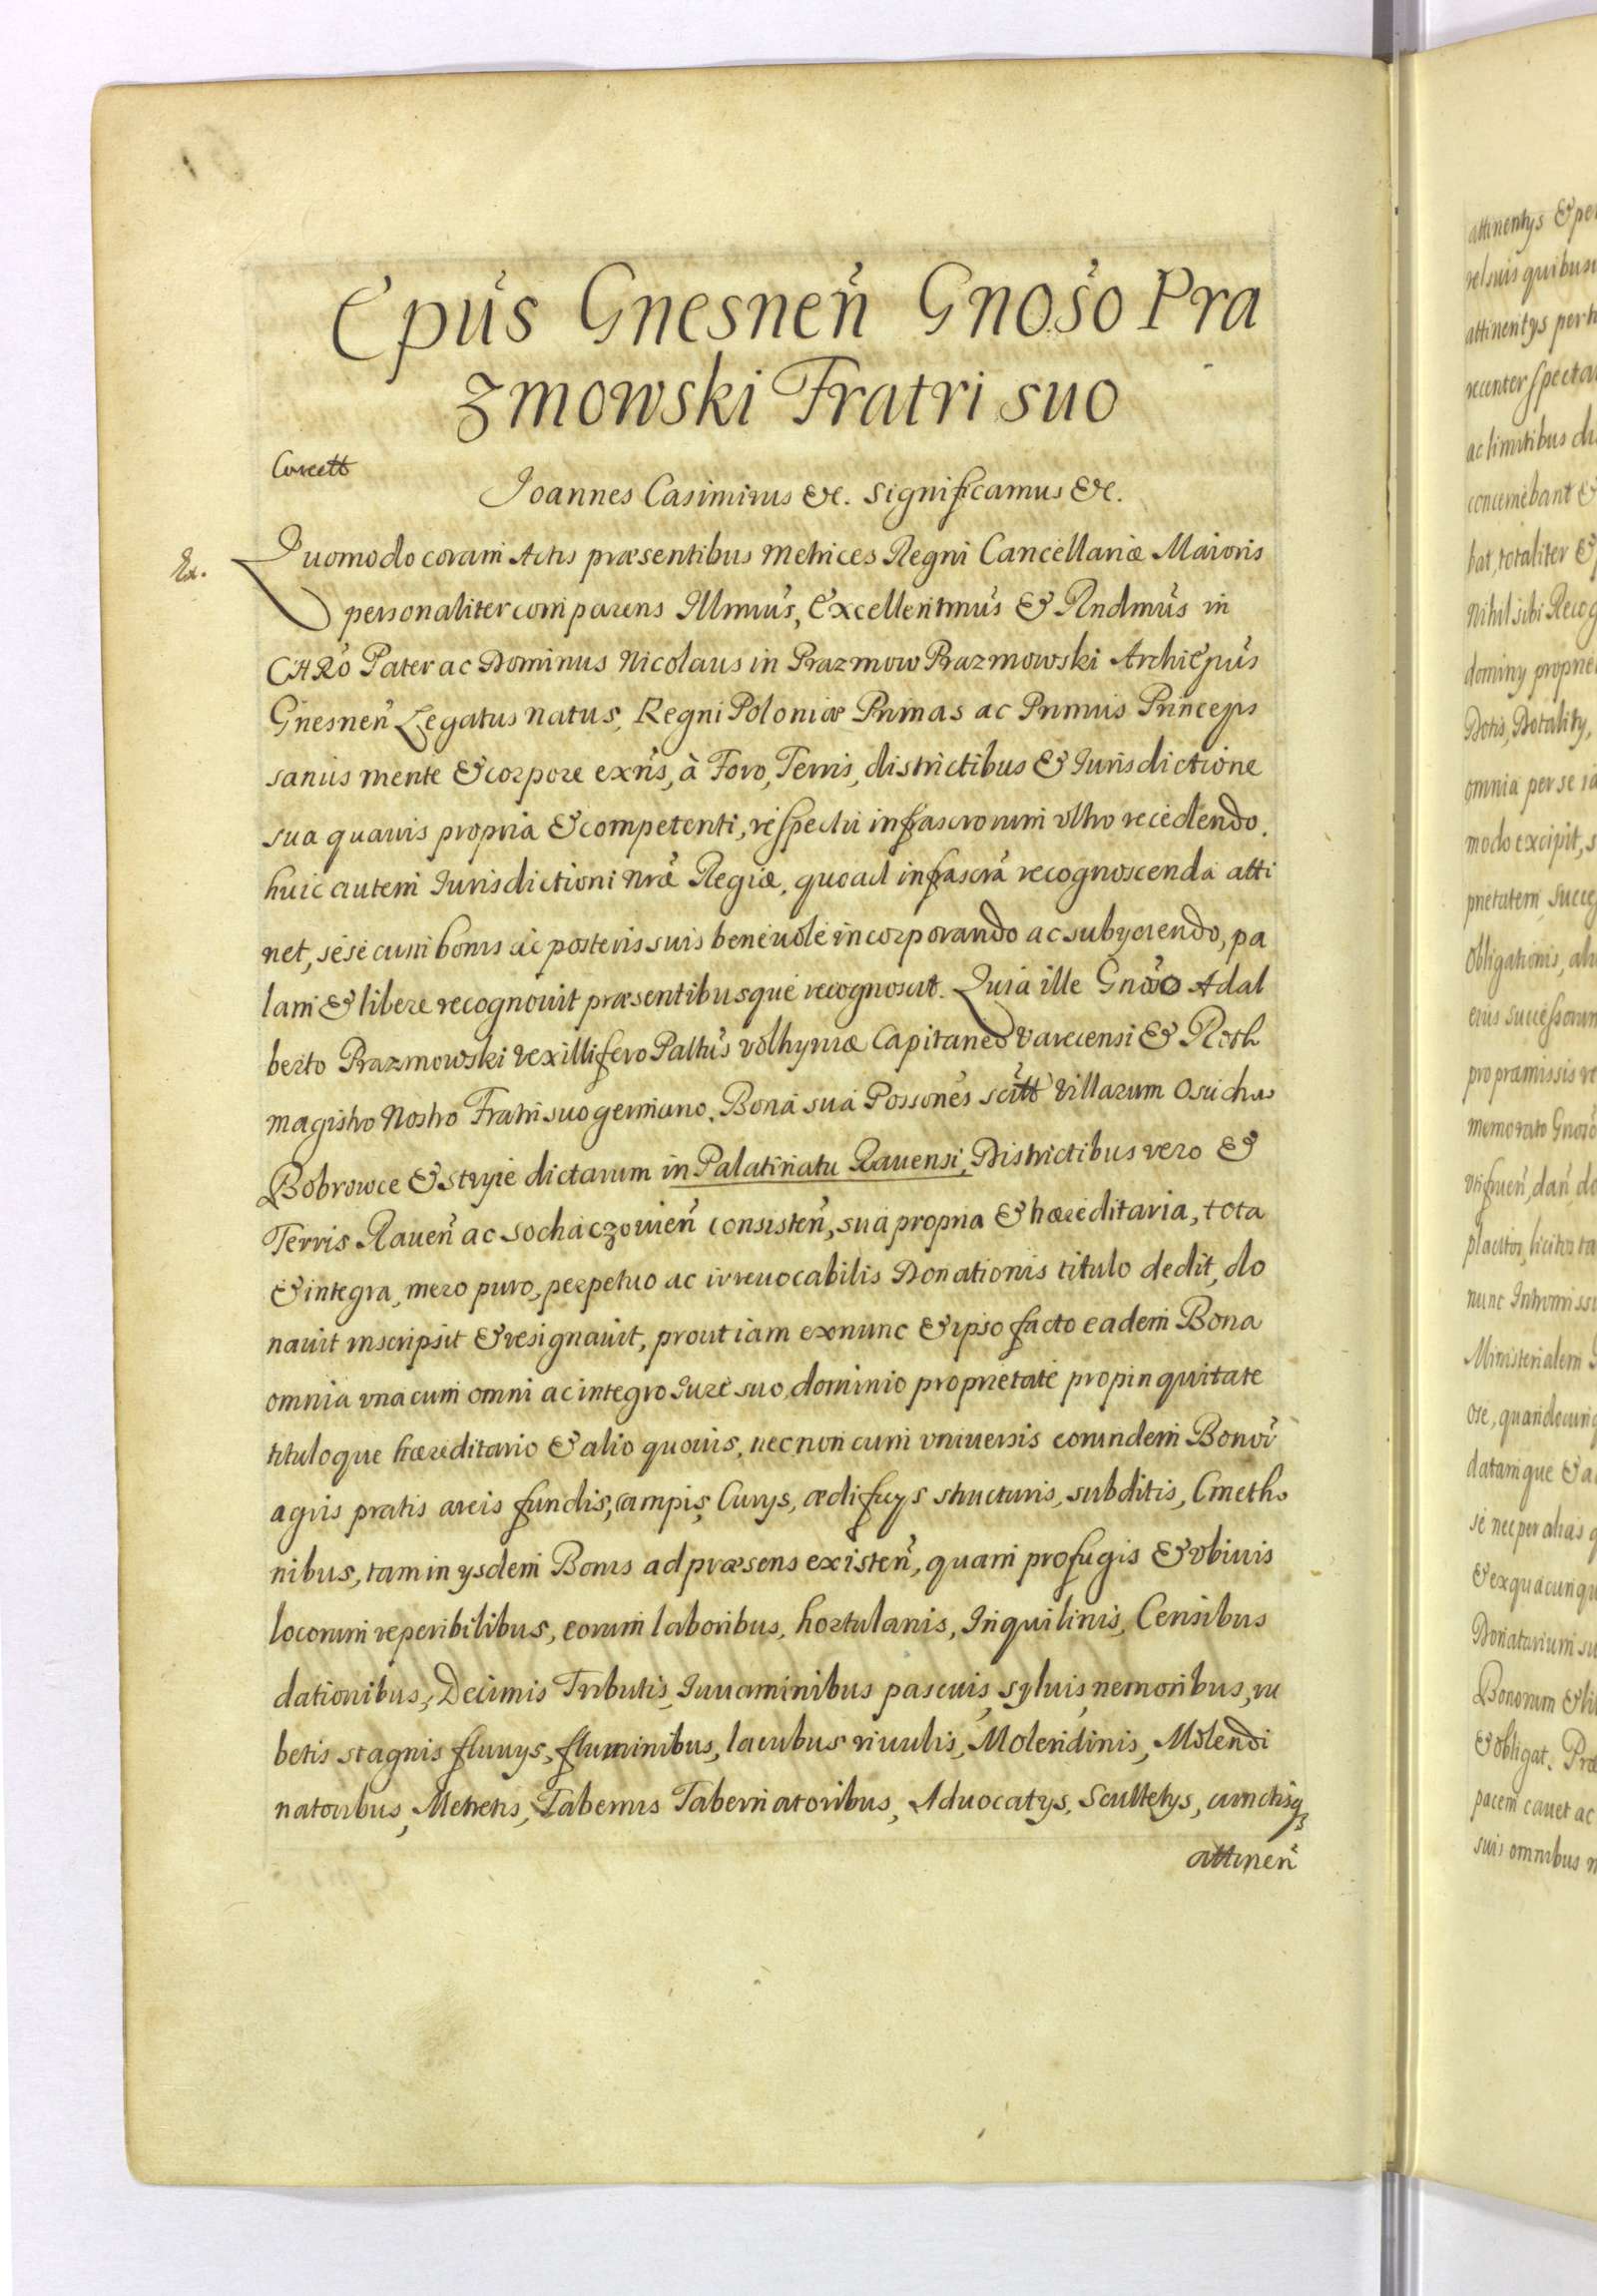 Epu̇s Gnesnen̉ Gnoṡo Pra
zmowski Fratri suo
Joannes Casimirus &c. Significamus &c.
Ex.
Quomodo coram Actis præsentibus Metrices Regni Cancellariæ Maioris
personaliter comparens Illmu̇s, Excellentmu̇s & Rndmu̇s in
CHRȯ Pater ac Dominus Nicolaus in Prazmow Prazmowski Archiepu̇s
Gnesnen̉ Legatus natus, Regni Poloniæ Primas ac Primus Princeps
sanus mente & corpore exn̉s, à Foro, Terris, districtibus & Jurisdictione
sua quauis propria & competenti, respectu infrascrorum vltro recedendo.
huic autem Jurisdictioni nræ̉ Regiæ, quoad infrascrả recognoscenda atti
net, sese cum bonis ac posteris suis beneuole incorporando ac subyciendo, pa
lam & libere recognouit præsentibusque recognoscit. Quia ille Gnoṡo Adal
berto Prazmowski vexillifero Paltu̇s volhyniæ Capitaneo Varecensi & Roth
magistro Nostro Fratri suo germano. Bona sua Possones̉ scitt̉ Villarum Osuchow
Bobrowce & Stryie dictarum in Palatinatu Rauensi, Districtibus vero &
Terris Rauen̉ ac Sochaczouien̉ consisten̉, sua propria & hæreditaria, tota
& integra, mero puro, perpetuo ac irreuocabilis Donationis titulo dedit, do
nauit inscripsit & resignauit, prout iam exnunc & ipso facto eadem Bona
omnia vna cum omni ac integro Jure suo, dominio proprietate propinquitate
tituloque hæreditario & alio quouis, nec non cum vniuersis eorundem Bonor̉
agris pratis areis fundis, campis, Curys, ædificys structuris, subditis, Cmetho
nibus, tam in ysdem Bonis ad præsens existen̉, quam profugis & vbiuis
locorum reperibilibus, eorum laboribus, hortulanis, Inquilinis, Censibus
dationibus, Decimis Tributis, Juuaminibus pascuis, syluis, nemoribus, ru
betis stagnis fluuys, fluminibus, lacubus riuulis, Molendinis, Molendi
natoribus, Metretis, Tabernis Tabernatoribus, Aduocatys, Scultetys, cunctisq3
attinen̉
attinentys & per
vel suis quibus
attinentys per h
recenter specta
ac limitibus du
concernebant &
bat, totaliter &
Nihil sibi Recog
dominy propriet
Dotis, Dotality,
omnia per se ia
modo excipit, s
prietatem, succes
Obligationis, ali
eius successorum
pro præmissis ve
memorato Gnoṡo
vtifruen̉, dan̉, do
placitos, licitos ta
nunc Intromissi
Ministerialem
ose, quandocunq
datamque & a
se nec per alias q
& ex quacunqu
Donatarium su
Bonorum & li
& obligat. Præ
pacem cauet ac
suis omnibus n